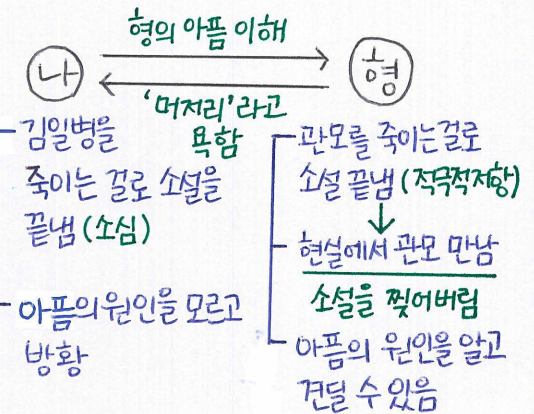 형의 아픔 이해
나
형
'머저리'라고
욕함
김일병을
죽이는 걸로 소설을
끝냄 (소심)
아픔의 원인을 모르고
방황
관모를 죽이는걸로
소설 끝냄 (적극적저항)
현실에서 관모 만남
소설을 찢어버림
아픔의 원인을 알고
견딜 수 있음